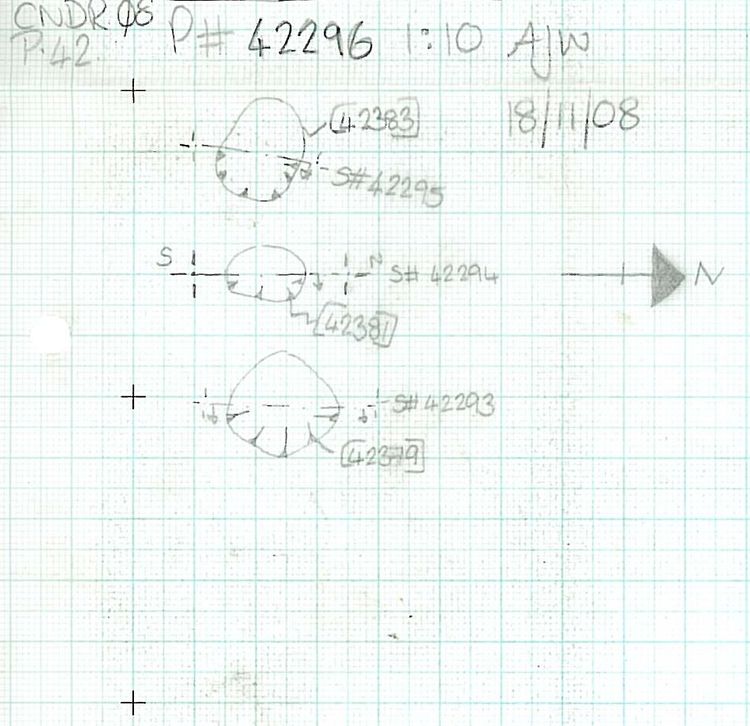 CNDR 08 P# 42296 1:10 AJW
P.42
18/11/08
[42383]
S# 42295
S N S# 42294 N
[42381]
S# 42293
[42379]